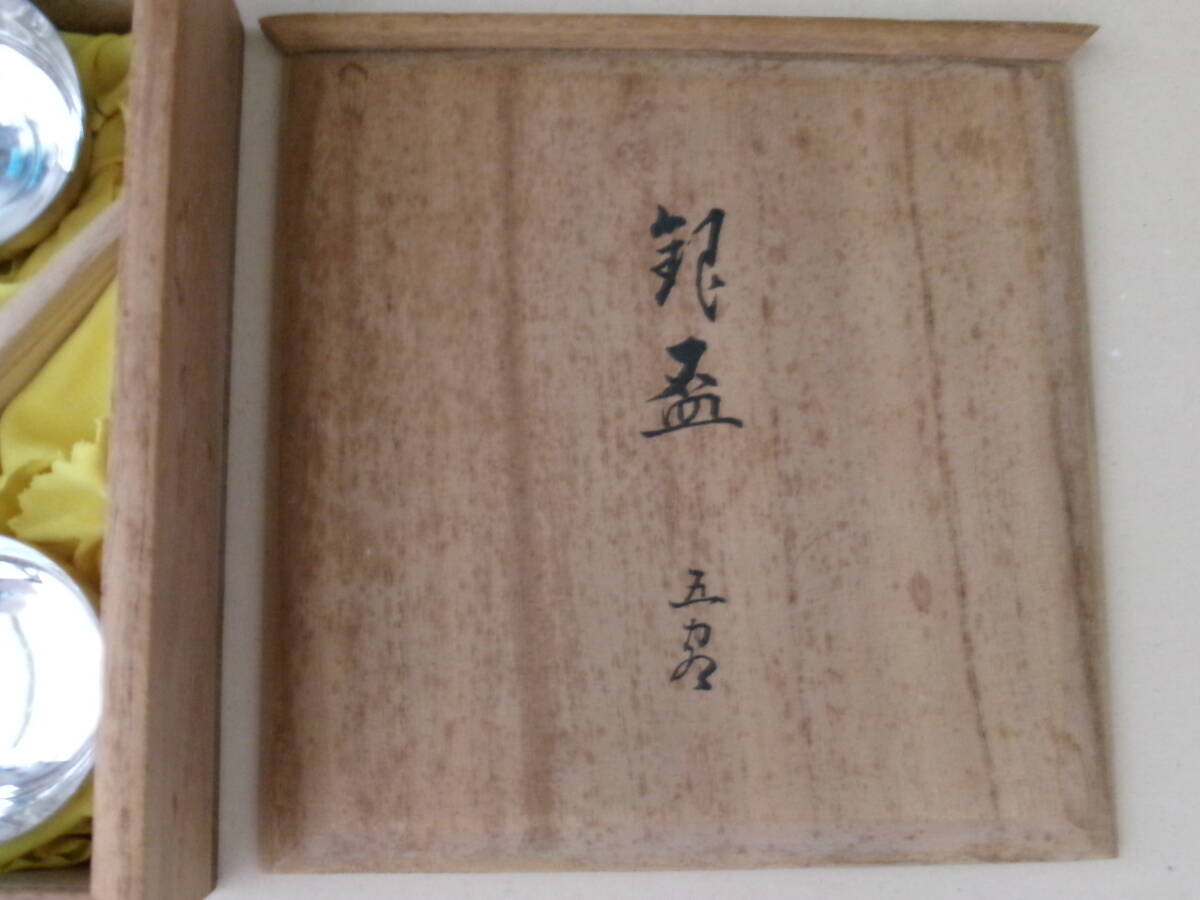 銀盃
五客